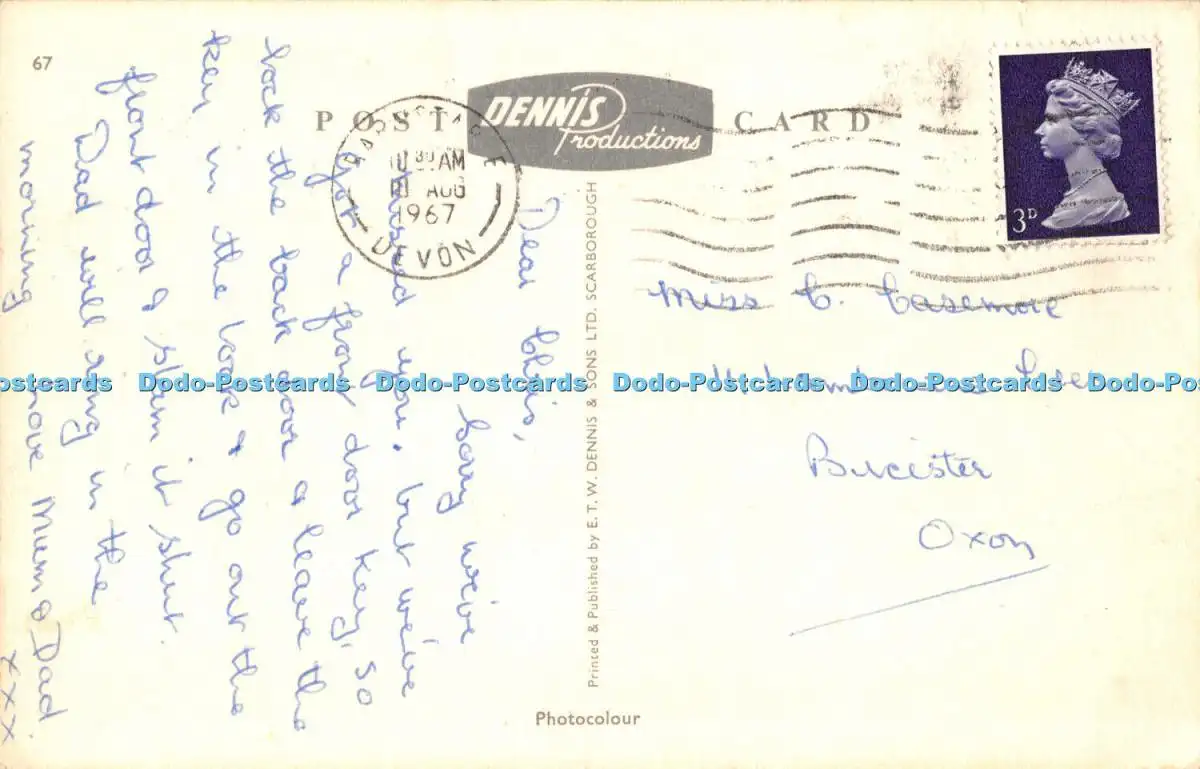 67
POST CARD
DENNIS
Productions
10 30 AM
AUG
1967
DEVON
3D
Dear Chris,
Sorry we've
missed you. but we've
got a front door key, so
lock the back door & leave the
key in the lock & go out the
front door & slam it shut.
Dad will ring in the
morning
love Mum & Dad
xxx
Printed & Published by E. T. W. DENNIS & SONS LTD. SCARBOROUGH
Miss C. Casemore
Bicester
Oxon
Dodo-Postcards Dodo-Postcards Dodo-Postcards Dodo-Postcards
Photocolour